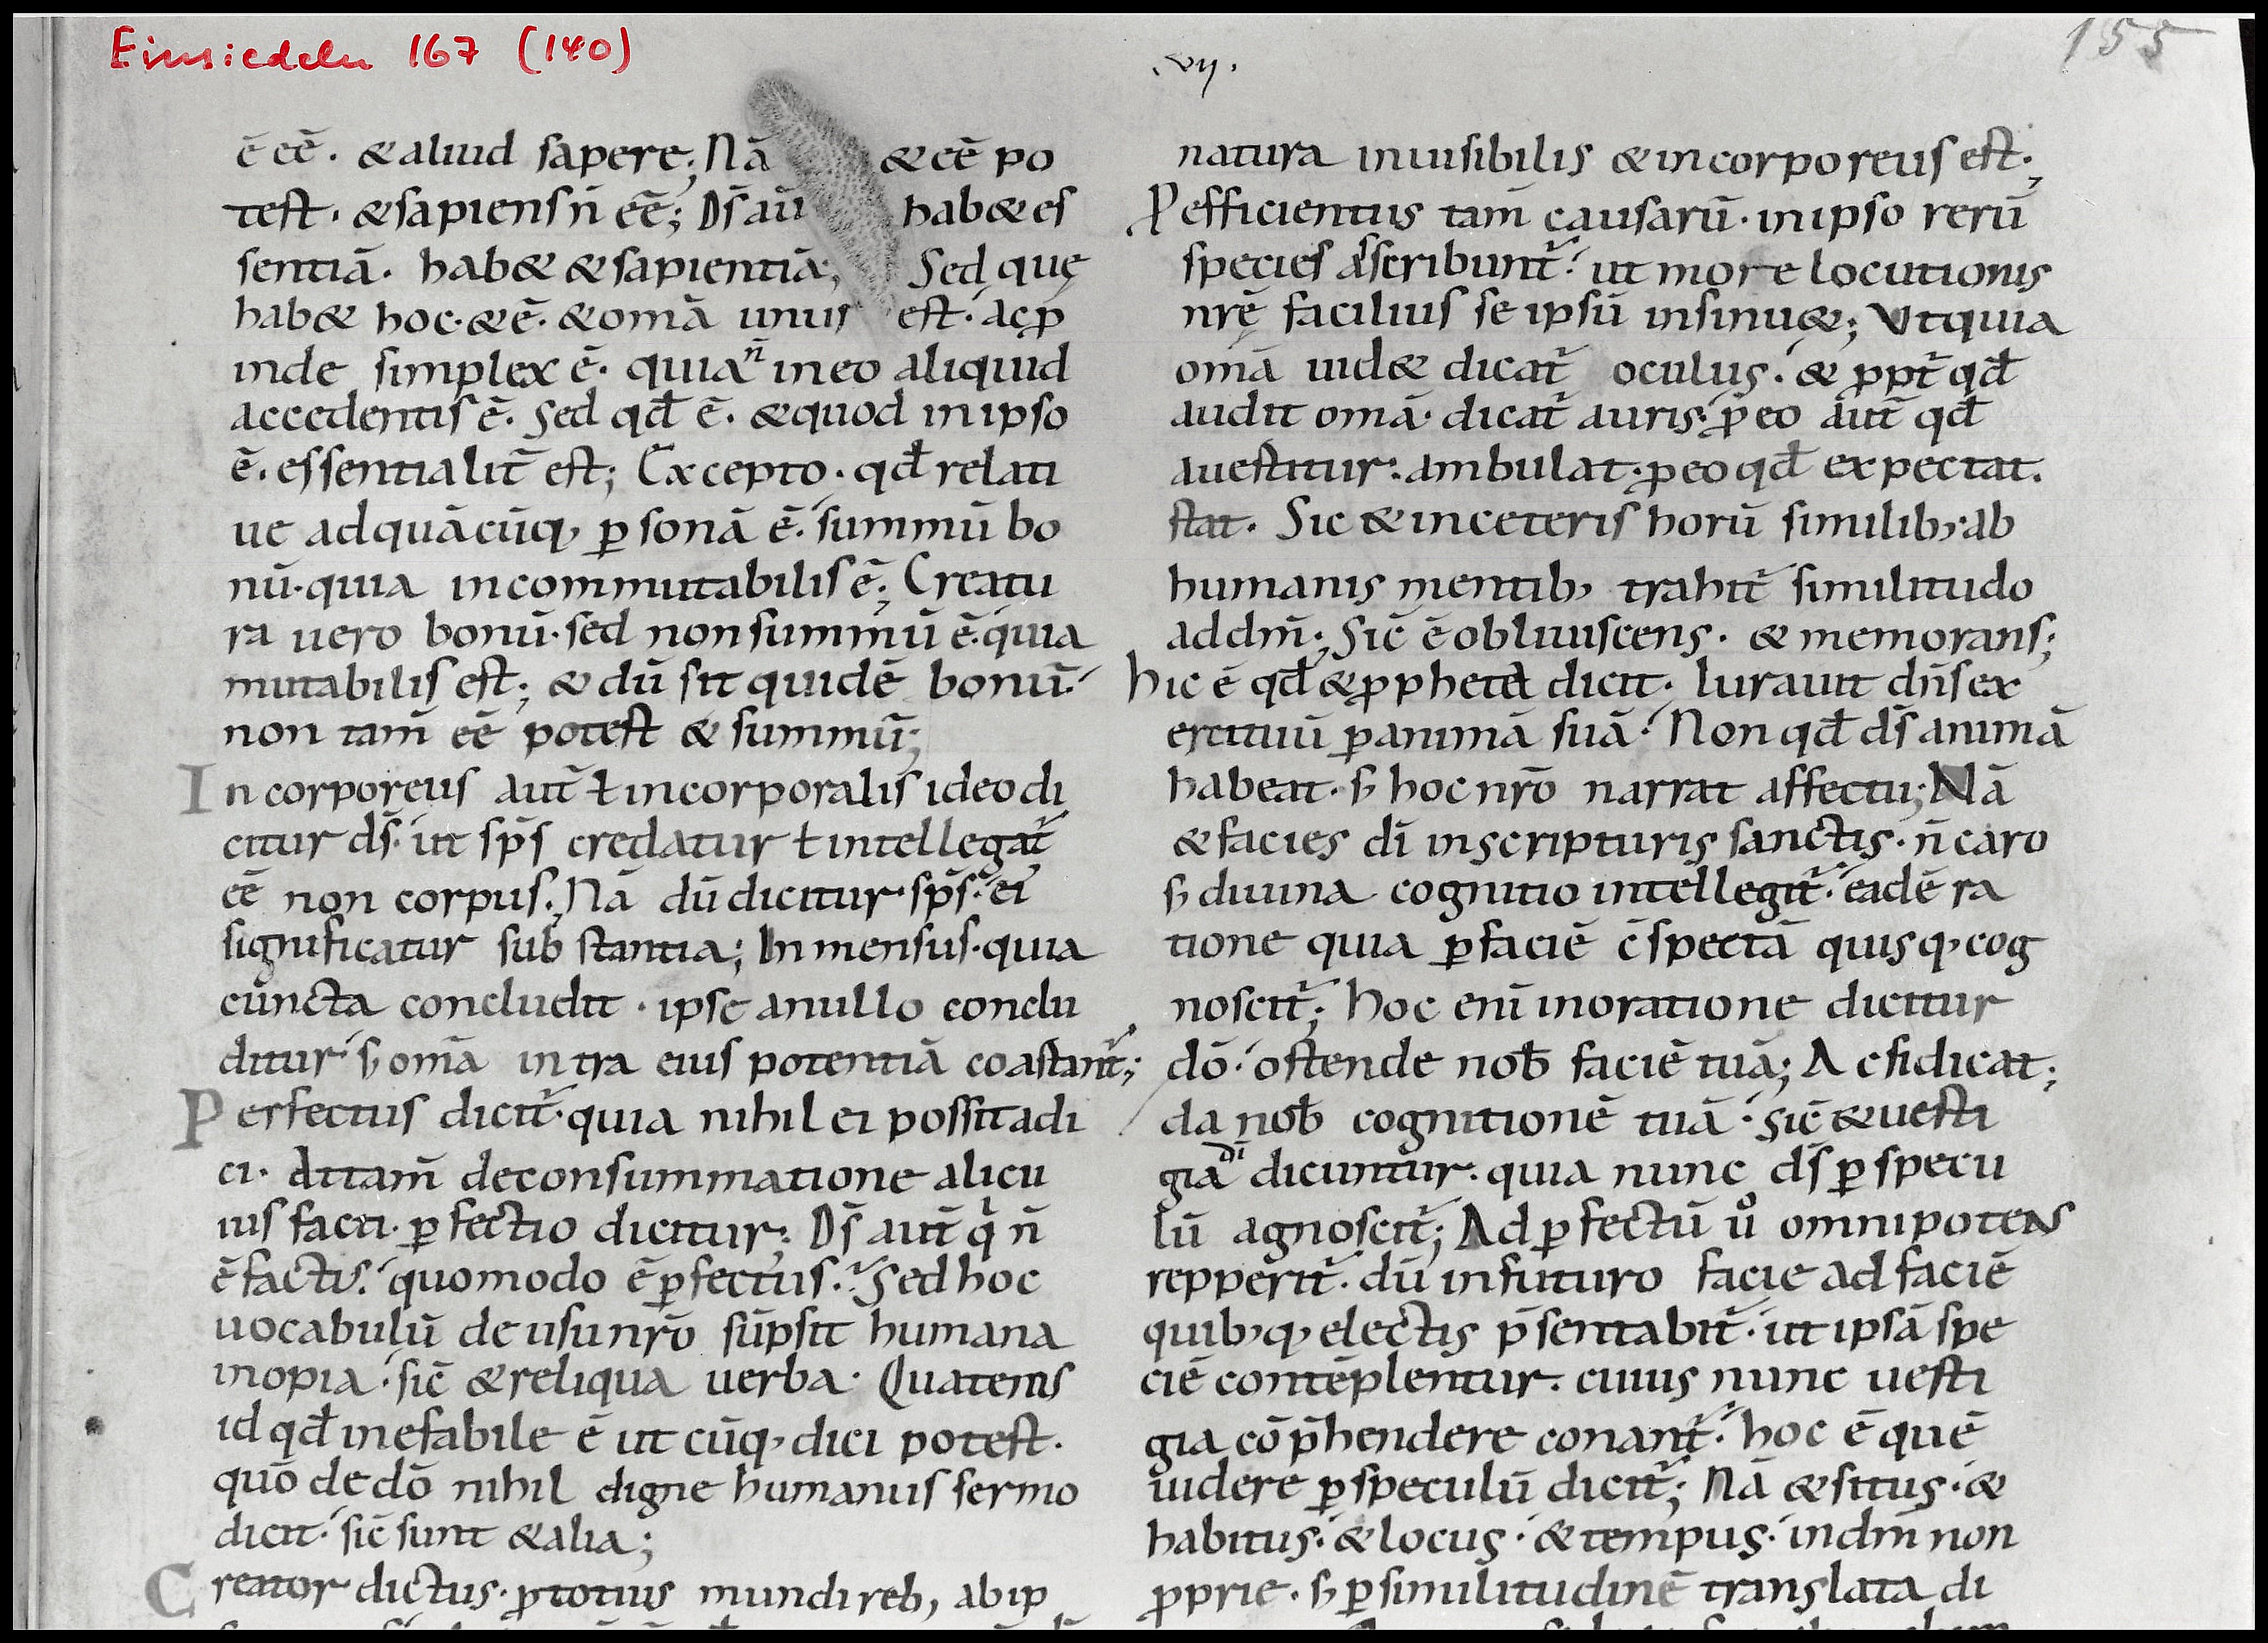 Einsiedeln 167 (140)
.vij.
155
ē eē. & aliud sapere; Nā & eē po
test. & sapiens n̄ eē; Ds̄ aū hab& es
sentiā. hab& & sapientiā; Sed que
hab& hoc. & ē. & om̄a unus est. ac ꝓ
inde simplex ē. quia n̄ in eo aliquid
accedentis ē. Sed qđ ē. & quod in ipso
ē. essentialit̄ est; Excepto. qđ relati
ue ad quācūq, ꝑsonā ē. summū bo
nū. quia incommutabilis ē; Creatu
ra uero bonū. sed non summū ē. quia
mutabilis est; & dū sit quidē bonū.
non tam̄ eē potest & summū;
Incorporeus aut̄ ł incorporalis ideo di
citur ds̄. ut sps̄ credatur ł intellegat̄
eē non corpus; Nā dū dicitur. sps̄. ei
significatur substantia; Inmensus. quia
cuncta concludit. ipse a nullo conclu
ditur. s; om̄a intra eius potentiā coastant̄;
Perfectus dicit̄. quia nihil ei possit adi
ci. Attam̄ de consummatione alicu
ius facti. ꝑfectio dicitur; Ds̄ aut̄ q̄ n̄
ē factus. quomodo ē ꝑfectus. Sed hoc
uocabulū de usu nr̄o sūpsit humana
inopia. sic̄ & reliqua uerba. Quatenus
id qđ inefabile ē ut cūq, dici potest.
quō de dō nihil digne humanus sermo
dicit. sic̄ sunt & alia;
Creator dictus. ꝓ totius mundi reb, ab ip
natura inuisibilis & incorporeus est;
P efficientus tam̄ causarū. in ipso rerū
species ascribunt̄. ut more locutionis
nrē facilius se ipsū insinu&; Ut quia
om̄a uid& dicat̄ oculus. & ꝓpt̄ qđ
audit om̄a. dicat̄ auris. ꝓ eo aut̄ qđ
auestitur. ambulat. ꝓ eo qđ expectat.
stat. Sic & in ceteris horū similib, ab
humanis mentib, trahit̄ similitudo
ad dm̄; Sic̄ ē obliuiscens. & memorans;
hic ē qđ & ꝓpheta dicit. Iurauit dn̄s ex
ercituū ꝑ animā suā. Non qđ ds̄ animā
habeat. s; hoc nr̄o narrat affectu; Nā
& facies dī in scripturis sanctis. n̄ caro
s; diuina cognitio intellegit̄. eadē ra
tione quia ꝑ faciē c̄spectā quisq, cog
noscit̄; hoc enī in oratione dicitur
dō. ostende nob̄ faciē tuā; Ac si dicat;
da nob̄ cognitionē tuā. Sic̄ & uesti
gia dī dicuntur. quia nunc ds̄ ꝑ specu
lū agnoscit̄; Ad ꝑfectū uº omnipotens
repperit̄. dū in futuro facie ad faciē
quib,q, electis p̄sentabit̄. ut ipsā spe
ciē contēplentur. cuius nunc uesti
gia cōp̄hendere conant̄. hoc ē quē
uidere ꝑ speculū dicit̄; Nā & situs. &
habitus. & locus. & tempus. in dm̄ non
ꝓprie. s; ꝑ similitudinē translata di